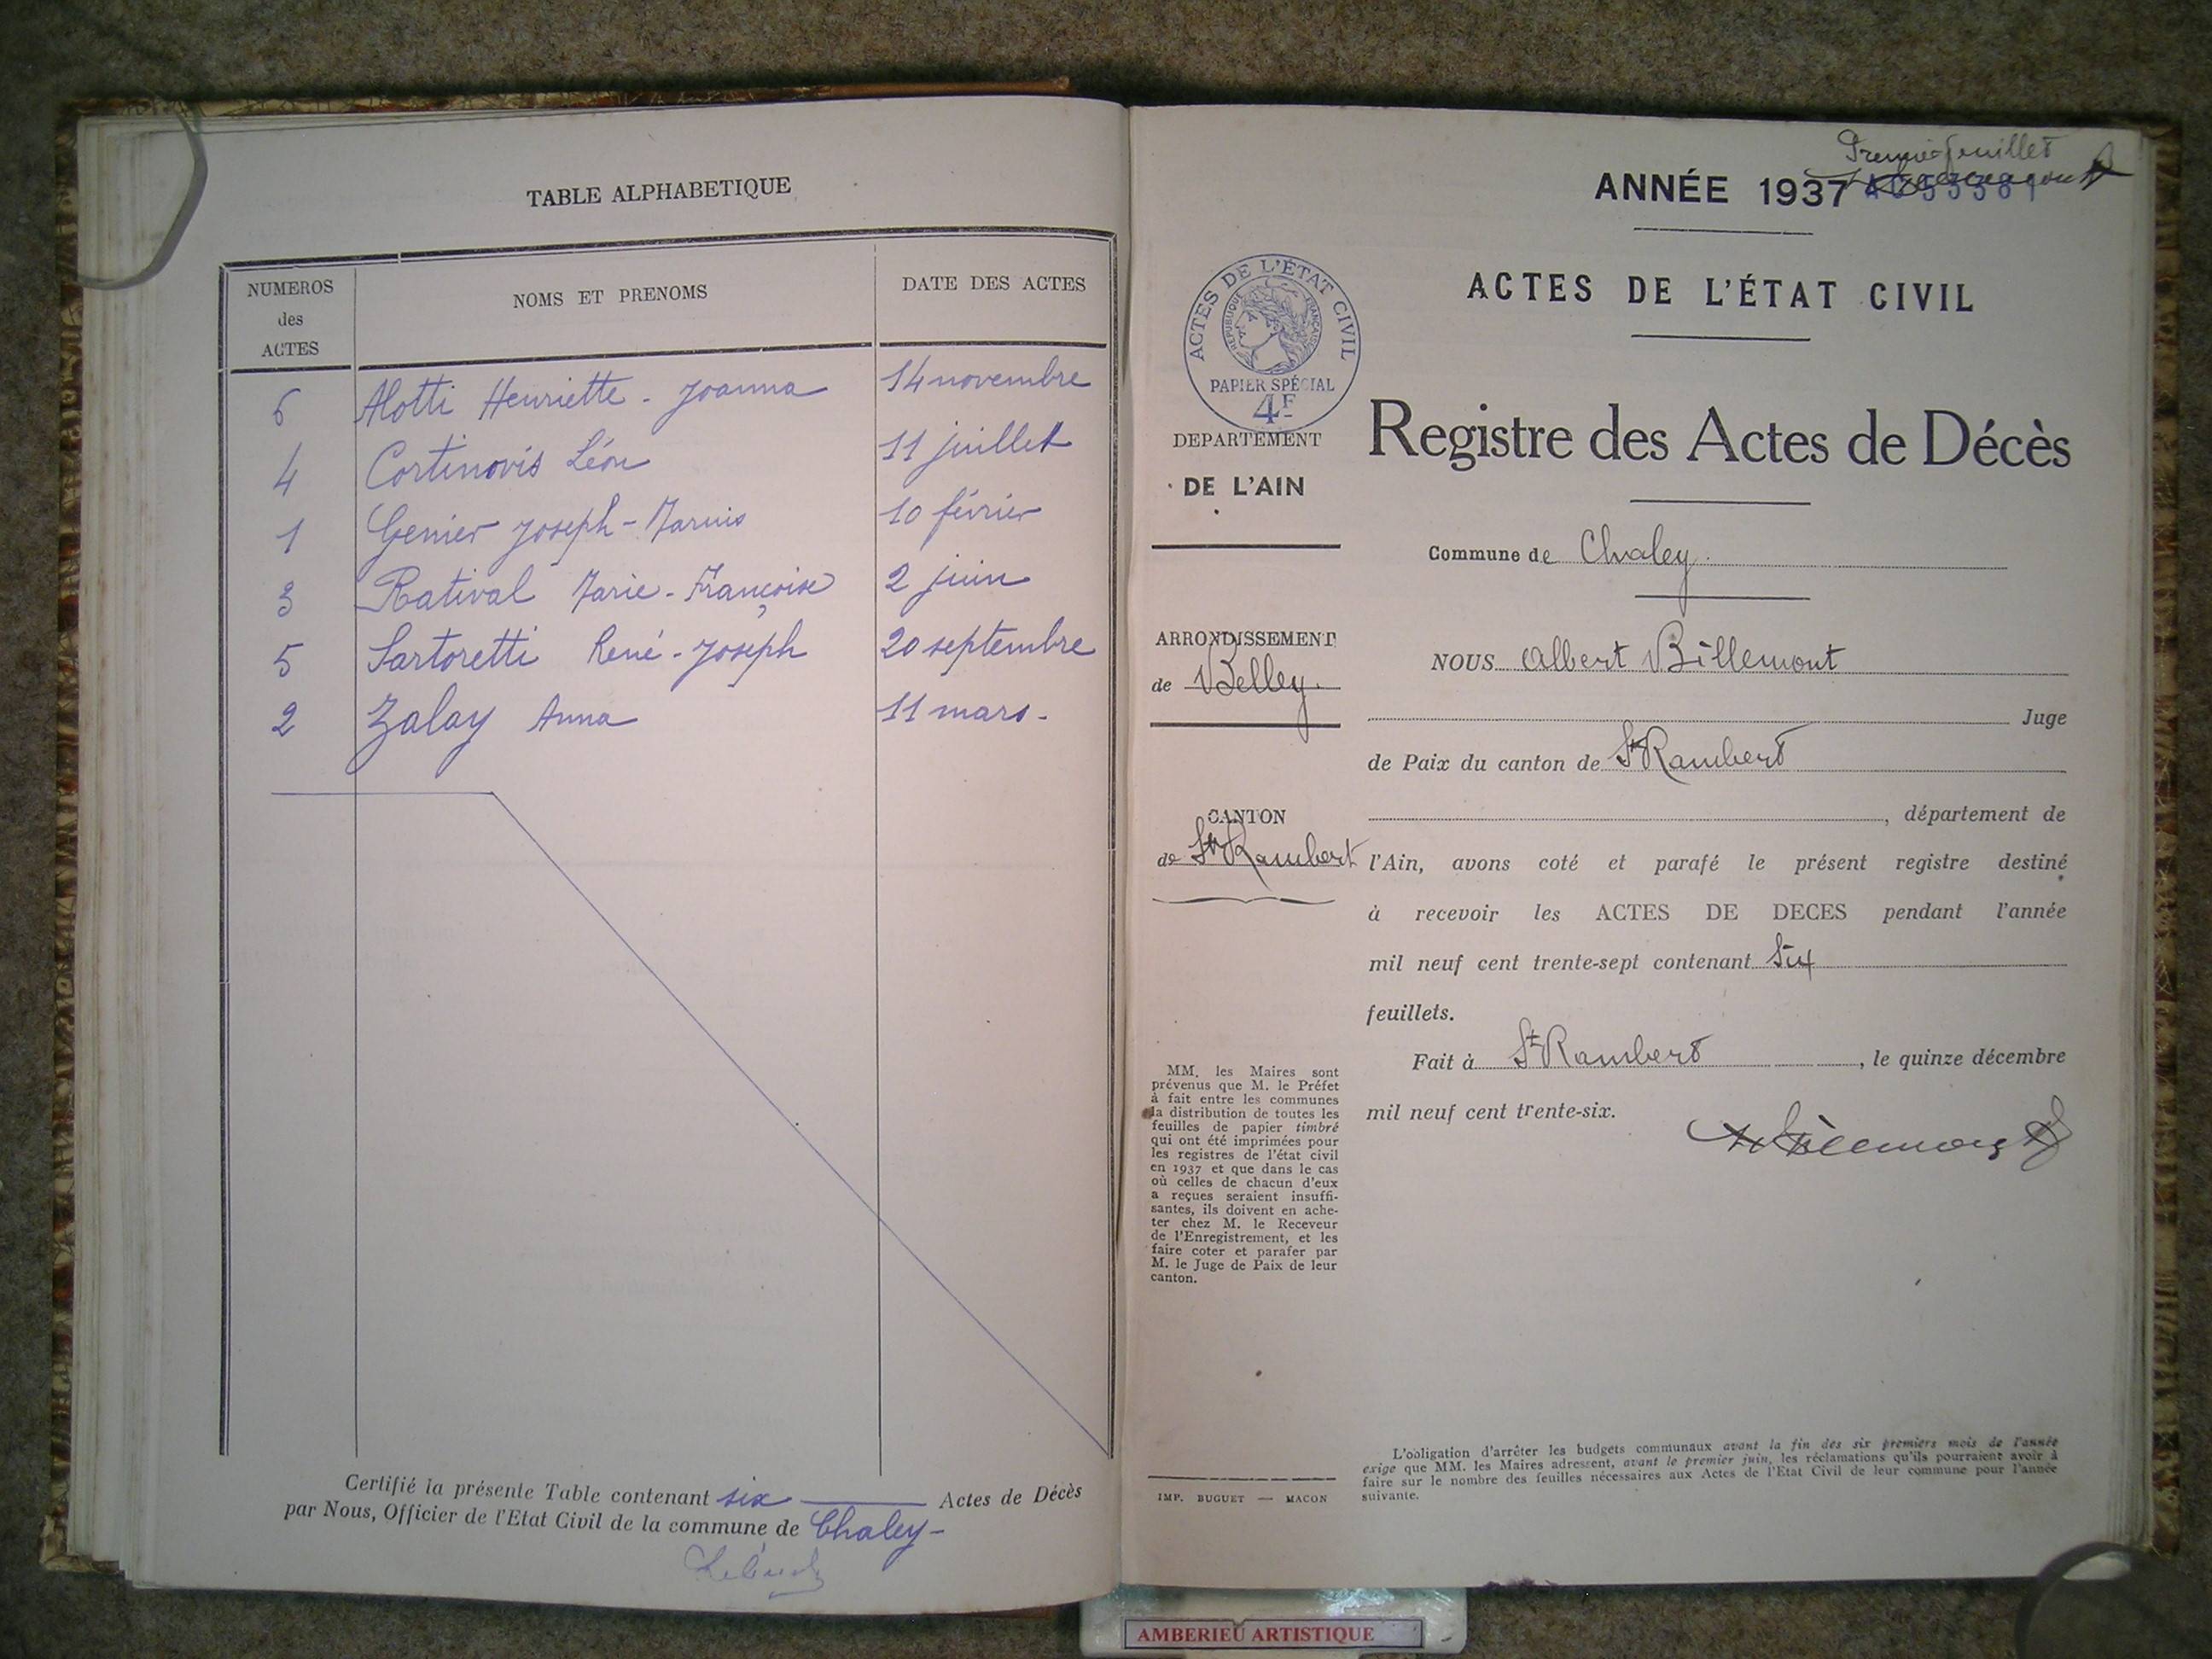 TABLE ALPHABETIQUE
NUMEROS
des
ACTES
NOMS ET PRENOMS
DATE DES ACTES
6 Alotti Henriette - Joanna 14 novembre
4 Cortinovis Léon 11 juillet
1 Genier Joseph - Marius 10 février
3 Ratival Marie - Françoise 2 juin
5 Sartoretti René - Joseph 20 septembre
2 Zalay Anna 11 mars.
Certifié la présente Table contenant six Actes de Décès
par Nous, Officier de l'Etat Civil de la commune de Chaley -
Premier feuillet
ANNÉE 1937
ACTES DE L'ÉTAT CIVIL
ACTES DE L'ÉTAT CIVIL
REPUBLIQUE FRANÇAISE
PAPIER SPÉCIAL
4F
DEPARTEMENT
DE L'AIN
ARRONDISSEMENT
de Belley.
CANTON
de St Rambert
MM. les Maires sont
prévenus que M. le Préfet
à fait entre les communes
la distribution de toutes les
feuilles de papier timbré
qui ont été imprimées pour
les registres de l'état civil
en 1937 et que dans le cas
où celles de chacun d'eux
a reçues seraient insuffi-
santes, ils doivent en ache-
ter chez M. le Receveur
de l'Enregistrement, et les
faire coter et parafer par
M. le Juge de Paix de leur
canton.
IMP. BUGUET — MACON
Registre des Actes de Décès
Commune de Chaley.
NOUS Albert Billemont
Juge
de Paix du canton de St Rambert
, département de
l'Ain, avons coté et parafé le présent registre destiné
à recevoir les ACTES DE DECES pendant l'année
mil neuf cent trente-sept contenant Six
feuillets.
Fait à St Rambert, le quinze décembre
mil neuf cent trente-six.
L'obligation d'arrêter les budgets communaux avant la fin des six premiers mois de l'année
exige que MM. les Maires adressent, avant le premier juin, les réclamations qu'ils pourraient avoir à
faire sur le nombre des feuilles nécessaires aux Actes de l'Etat Civil de leur commune pour l'année
suivante.
AMBERIEU ARTISTIQUE